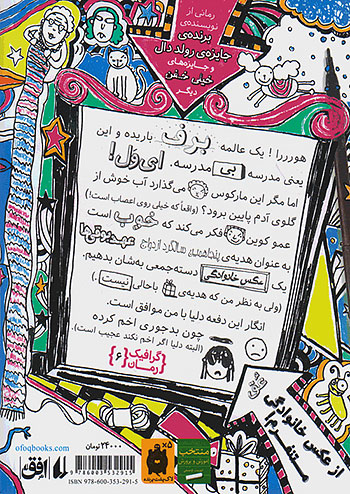 رمانی از
نویسنده‌ی
برنده‌ی
جایزه‌ی رولد دال
و جایزه‌های
خیلی خفن
دیگر
هوررررا ! یک عالمه برف باریده و این
یعنی مدرسه بی مدرسه. ای‌ول!
اما مگر این مارکوس می‌گذارد آب خوش از
گلوی آدم پایین برود؟ (واقعاً که خیلی روی اعصاب است!)
عمو کوین فکر می‌کند که خوب است
به عنوان هدیه‌ی پنجاهمین سالگرد ازدواج عهدبوقی‌ها
یک عکس خانوادگی دسته‌جمعی به‌شان بدهیم.
(ولی به نظر من که هدیه‌ی باحالی نیست.)
انگار این دفعه دلیا با من موافق است.
چون بدجوری اخم کرده
(البته دلیا اگر اخم نکند عجیب است).
گرافیک
رمان
{۶}
از عکس خانوادگی
متنفرم!
۲۴۰۰۰ تومان
ofoqbooks.com
افق
9 786003 532915
978-600-353-291-5
×۵
لاک‌پشت پرنده
منتخب
آموزش و پرورش